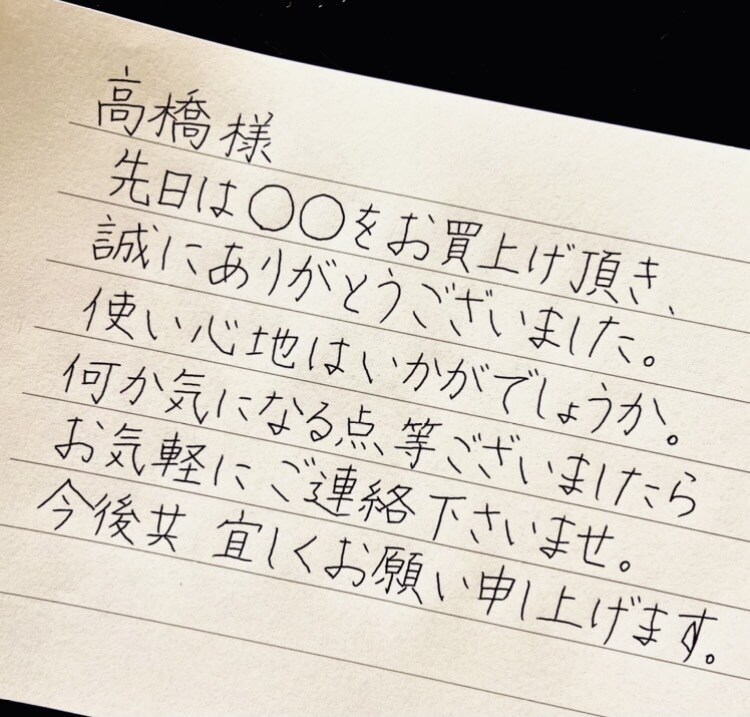 高橋様
先日は〇〇をお買上げ頂き、
誠にありがとうございました。
使い心地はいかがでしょうか。
何か気になる点等ございましたら
お気軽にご連絡下さいませ。
今後共 宜しくお願い申し上げます。